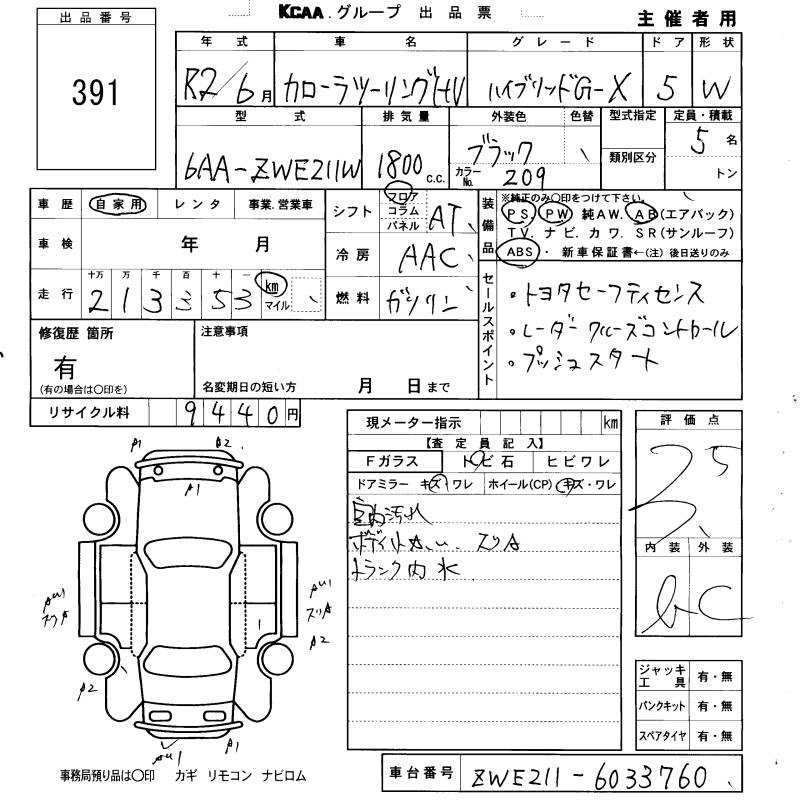 出品番号
391
KCAA.グループ 出品票
主催者用
年式 車名 グレード ドア 形状
R2/6月 カローラツーリングHV ハイブリッドG-X 5 W
型式 排気量 外装色 色替 型式指定 定員・積載
6AA-ZWE211W 1800c.c. ブラック 類別区分 5名
カラーNo. 209 トン
車歴 自家用 レンタ 事業.営業車
車検 年 月
走行 十万 万 千 百 十 一
2 1 3 3 5 3 km マイル
シフト フロア コラム パネル AT
冷房 AAC
燃料 ガソリン
装備品 ※純正のみ〇印をつけて下さい。
PS. PW 純AW. AB(エアバック)
TV. ナビ. カワ. SR(サンルーフ)
ABS・ 新車保証書←(注) 後日送りのみ
セールスポイント
・トヨタセーフティセンス
・レーダークルーズコントロール
・プッシュスタート
修復歴 箇所
有
(有の場合は〇印を)
注意事項
名変期日の短い方 月 日まで
リサイクル料 9440円
現メーター指示 km
【査定員記入】
Fガラス トビ石 ヒビワレ
ドアミラー キズ・ワレ ホイール(CP) キズ・ワレ
室内汚れ
スリA
トランク内 水
評価点
3.5
内装 外装
b C
A1 A2
A1
AU1
スリA
AU1
スリA
A2
A2
AU1 A1
ジャッキ工具 有・無
パンクキット 有・無
スペアタイヤ 有・無
事務局預り品は〇印 カギ リモコン ナビロム
車台番号 ZWE211-6033760